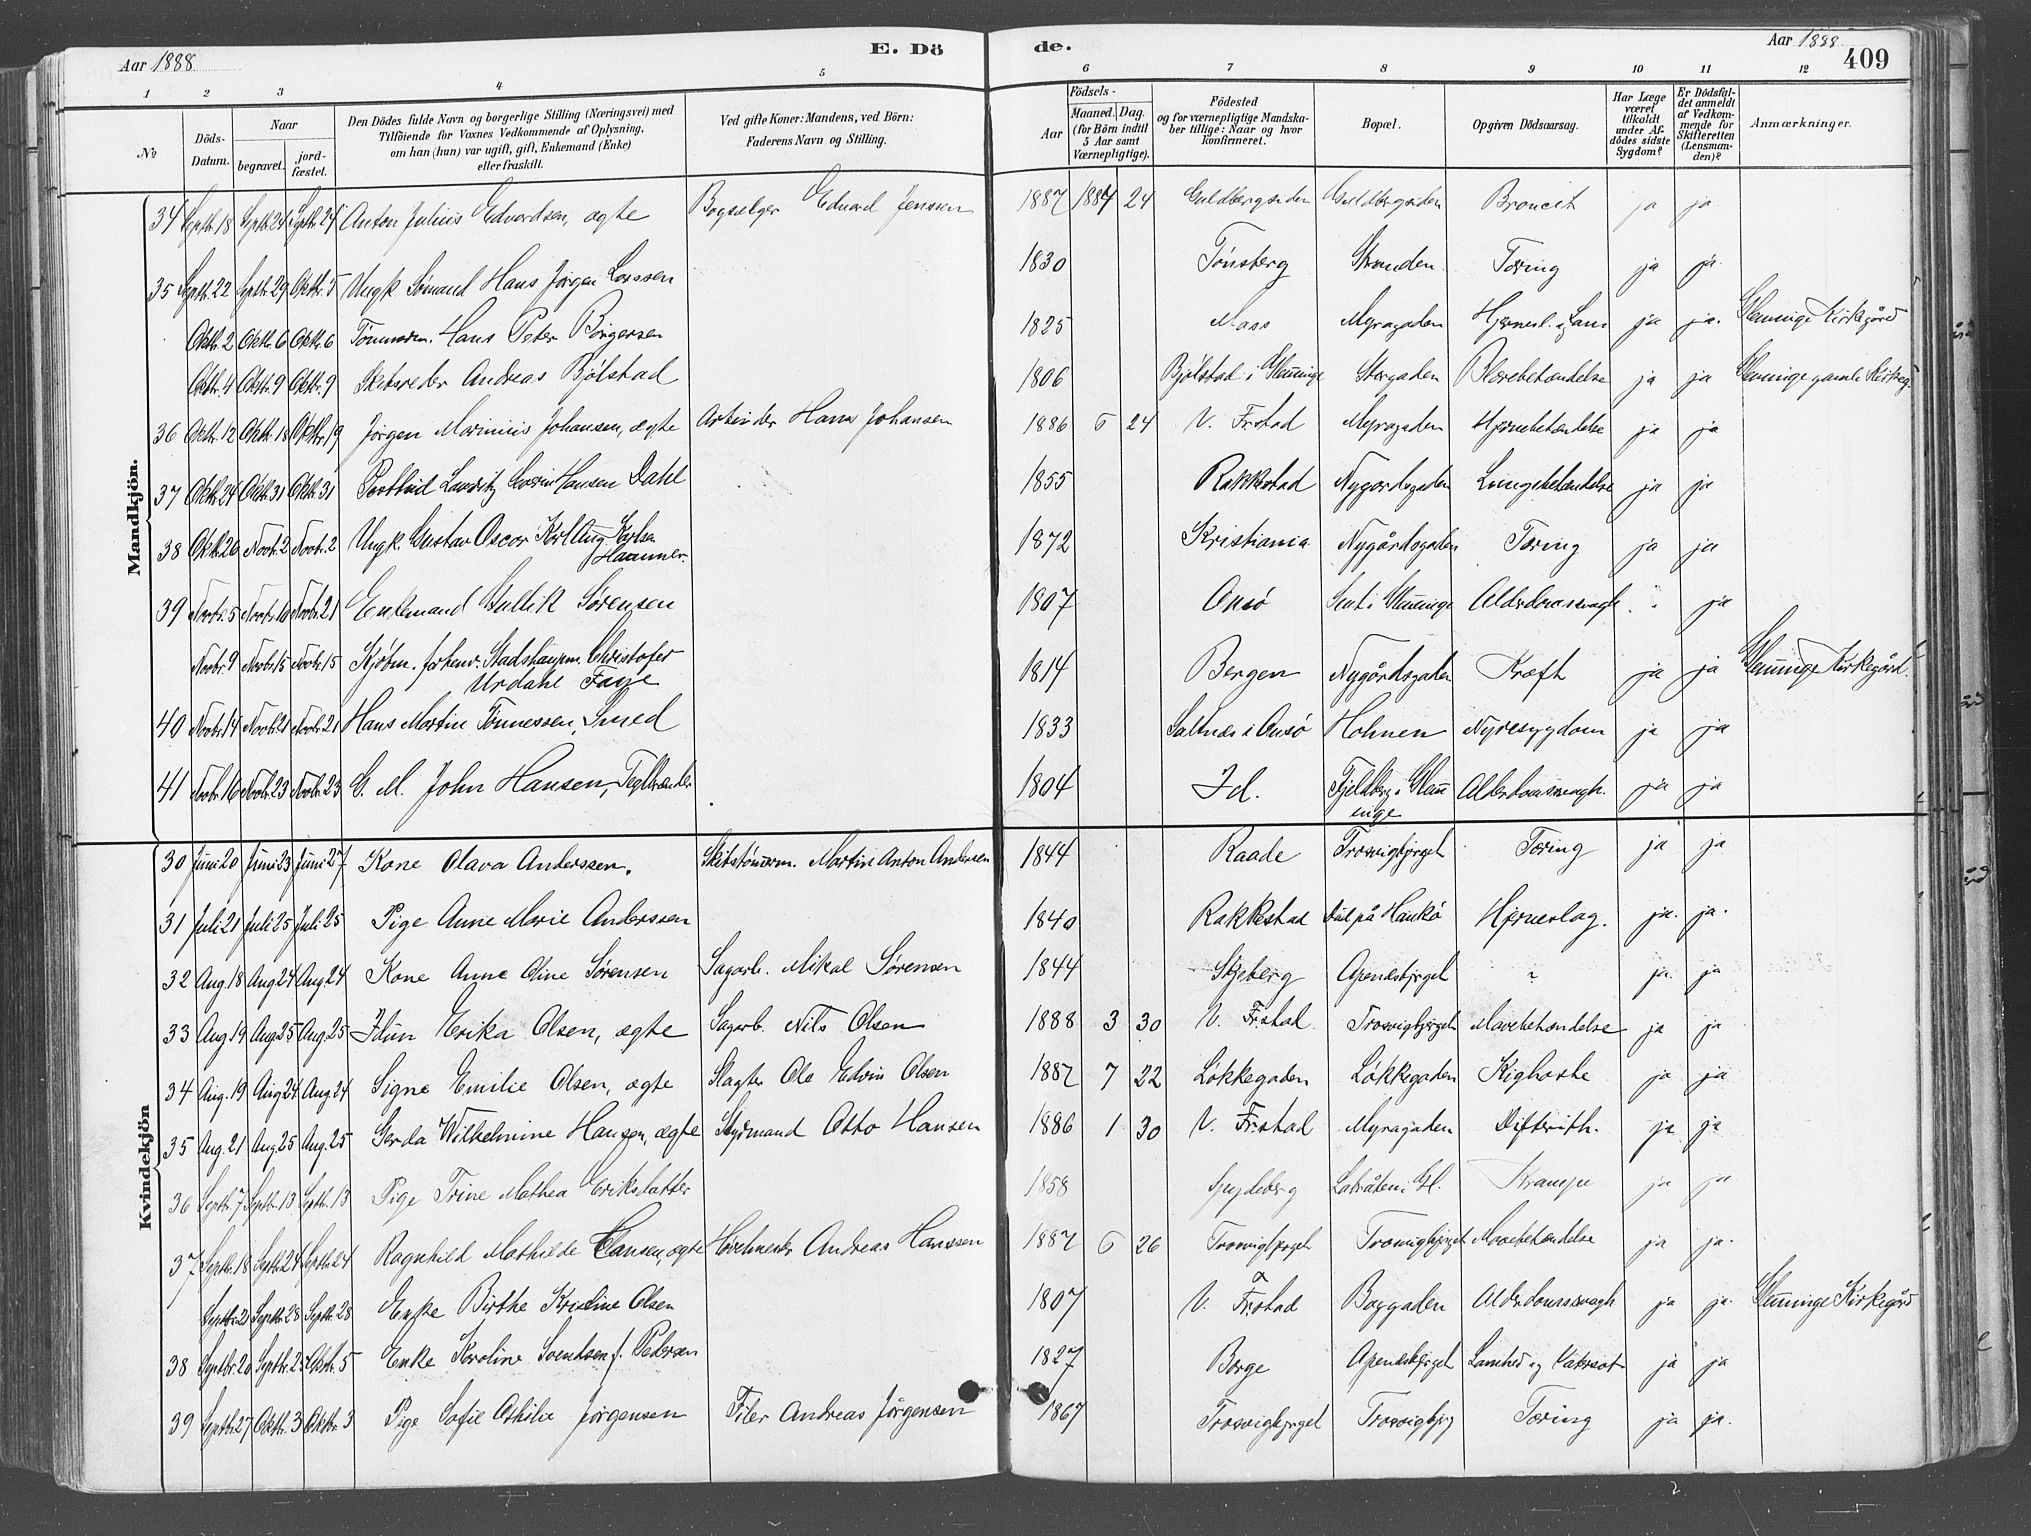 Aar 1888. E. Dö de. Aar 1888. 409
1 2 3 4 5 6 7 8 9 10 11 12
No Döds-Datum. Naar begravet. jordfæstet. Den Dödes fulde Navn og borgerlige Stilling (Næringsvei) med Tilföiende for Voxnes Vedkommende af Oplysning, om han (hun) var ugift, gift, Enkemand (Enke) eller fraskilt. Ved gifte Koner: Mandens, ved Börn: Faderens Navn og Stilling. Födsels- Aar Maaned. Dag. (for Börn indtil 5 Aar samt Værnepligtige). Födested og for værnepligtige Mandskaber tillige: Naar og hvor konfirmeret. Bopæl. Opgiven Dödsaarsag. Har Læge været tilkaldt under Afdödes sidste Sygdom? Er Dödsfaldet anmeldt af Vedkommende for Skifteretten (Lensmanden)? Anmærkninger.
Mandkjön.
34 Septbr. 18 Septbr. 24 Septbr. 24 Anton Julius Edvardsen, ægte Bogsælger Edvard Jensen 1887 24 Guldbergsiden Guldbergsiden Broncit ja ja
35 Septbr. 22 Septbr. 29 Oktbr. 5 Ungk. Sömand Hans Jörgen Larssen 1830 Tönsberg Stranden Tæring ja ja
Oktbr. 2 Oktbr. 6 Oktbr. 6 Tömmerm. Hans Peter Börgersen 1825 Moss Myragaden ja ja. Glemminge Kirkegård
Oktbr. 4 Oktbr. 9 Oktbr. 9 Skibsreder Andreas Bjölstad 1806 Bjölstad i Glemminge Storgaden Blærebetændelse ja ja Glemminge gamle Kirkeg.
36 Oktbr. 12 Oktbr. 18 Oktbr. 19 Jörgen Marinius Johansen, ægte Arbeider Hans Johansen 1886 6 24 V. Frstad Myragaden Hjernebetændelse ja ja
37 Oktbr. 24 Oktbr. 31 Oktbr. 31 Lauritz Severin Hansen Dahl 1855 Rakkestad Nygårdsgaden Lungebetændelse ja ja
38 Oktbr. 26 Novbr. 2 Novbr. 2 Ungk. Gustav Oscar Karl Aug. Karlsen Hammer. 1872 Kristiania Nygårdsgaden Tæring ja ja
39 Novbr. 5 Novbr. 10 Novbr. 21 Enkemand Gullik Sörensen 1807 Onsö i Glemminge Alderdomssvagh. " ja
Novbr. 9 Novbr. 15 Novbr. 15 Kjöbm. forhenv. Stadshauptm. Christofer
Urdahl Faye 1814 Bergen Nygårdsgaden Kræft ja ja Glemminge Kirkegård.
40 Novbr. 14 Novbr. 21 Novbr. 21 Hans Martin Tönnessen, Smed 1833 Saltnæs i Onsö Holmen Nyresygdom ja ja
41 Novbr. 16 Novbr. 23 Novbr. 23 G. M. John Hansen, Teglbrænder 1804 Id. Fjeldberg i Glemminge Alderdomssvagh. ja ja
Kvindekjön
30 Juni 20 Juni 23 Juni 27 Kone Olava Anderssen. Skibstömmerm. Martin Anton Andersen 1844 Raade Trosvigbjrget Tæring ja ja
31 Juli 21 Juli 25 Juli 25 Pige Anne Marie Anderssen 1840 Rakkestad Död på Hankö Hjerneslag. ja. ja.
32 Aug. 18 Aug. 24 Aug. 24 Kone Anne Oline Sörensen Sagarb. Mikal Sörensen 1844 Skjeberg Apenæsbjrget ? ja. ja
33 Aug. 19 Aug. 25 Aug. 25 Idun Erika Olsen, ægte Sagarb. Nils Olsen 1888 3 30 V. Frstad Trosvigbjrget Mavebetændelse ja ja
34 Aug. 19 Aug. 24 Aug. 24 Signe Emilie Olsen, ægte Slagter Ole Edvin Olsen 1887 7 22 Lökkegaden Lökkegaden Kighoste ja ja
35 Aug. 21 Aug. 25 Aug. 25 Gerda Wilhelmine Hansen, ægte Styrmand Otto Hansen 1886 1 30 V. Frstad Myragaden Difterith. ja ja
36 Septbr. 7 Septbr. 13 Septbr. 13 Pige Trine Mathea Eriksdatter 1858 Spydeberg Labråten i Gl. Krampe ja ja
37 Septbr. 18 Septbr. 24 Septbr. 24 Ragnhild Mathilde Hansen, ægte Andreas Hanssen 1887 6 26 Trosvigbjrget Trosvigbjrget Mavebetændelse ja ja.
Septbr. 21 Septbr. 28 Septbr. 28 Enke Birthe Kristine Olsen 1807 V. Frstad Baggaden Alderdomssvagh ja ja. Glemminge Kirkegård
38 Septbr. 20 Septbr. 25 Oktbr. 5 Enke Karoline Svendsen f. Pedersen 1827 Borge Apenæsbjrget Lamhed og Vatersot ja ja
39 Septbr. 27 Oktbr. 3 Oktbr. 3 Pige Sofie Othilie Jörgensen Filer Andreas Jörgensen 1867 Trosvigbjrget Trosvigbjrg Tæring ja ja.